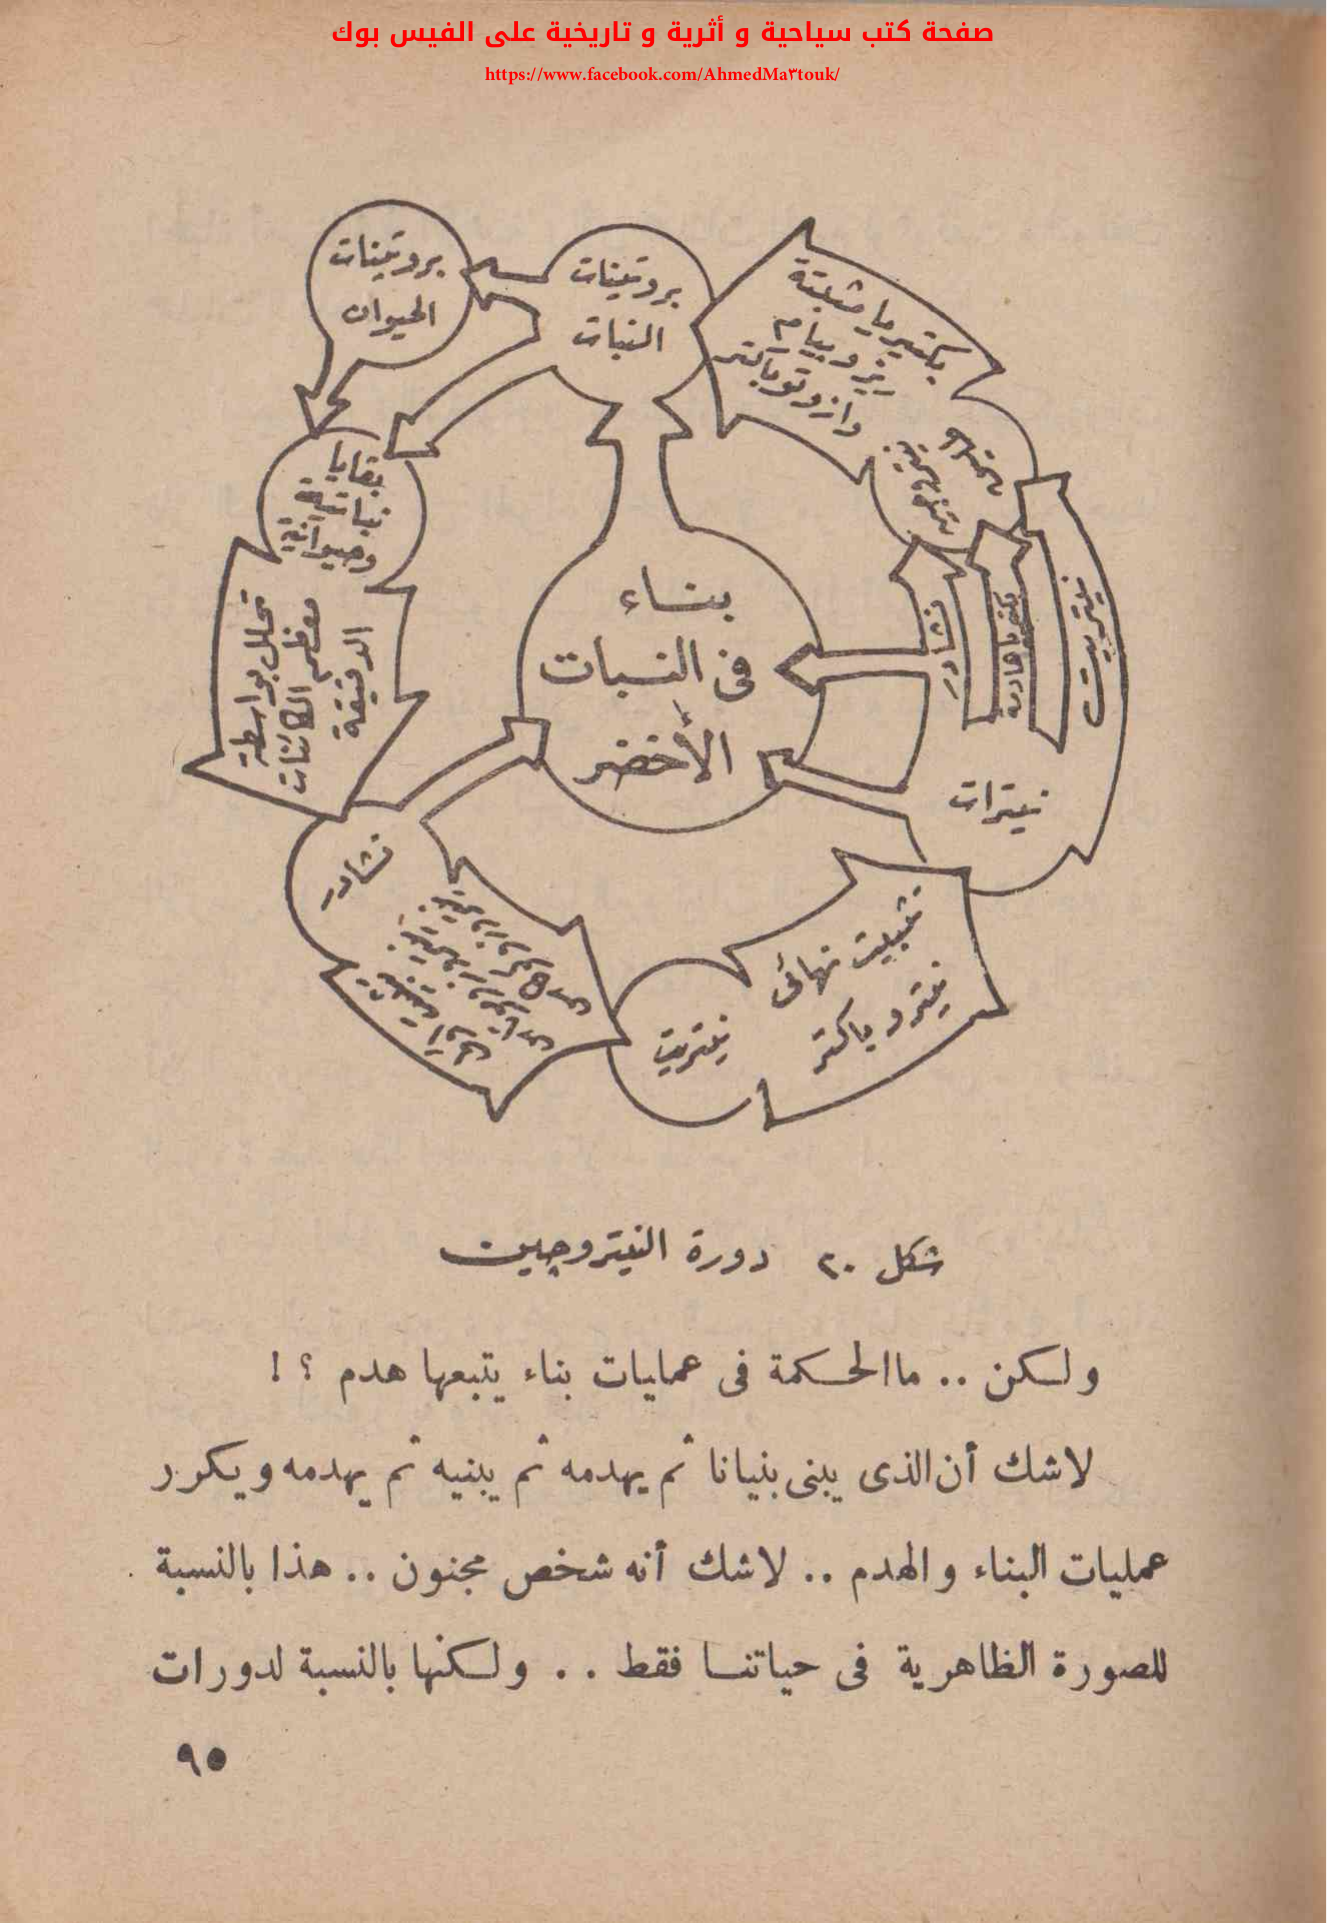 صفحة كتب سياحية و أثرية و تاريخية على الفيس بوك
https://www.facebook.com/AhmedMa٣touk/
بروتينات
الحيوان
بروتينات
النبات
بكتيريا مثبتة
وأزوتوباكتر
بقايا
نباتية
وحيوانية
تحلل بواسطة
معظم الكائنات
الدقيقة
بناء
فى النبات
الأخضر
نشادر
بكتريا هادمة
نيتريت
نيترات
نشادر
تثبيت نهائى
نيتروباكتر
نيتريت
شكل ٢٠ دورة النيتروجين
ولكن .. ما الحكمة فى عمليات بناء يتبعها هدم ؟ !
لاشك أن الذى يبنى بنيانا ثم يهدمه ثم يبنيه ثم يهدمه ويكرر
عمليات البناء والهدم .. لاشك أنه شخص مجنون .. هذا بالنسبة
للصورة الظاهرية فى حياتنا فقط .. ولكنها بالنسبة لدورات
٩٥